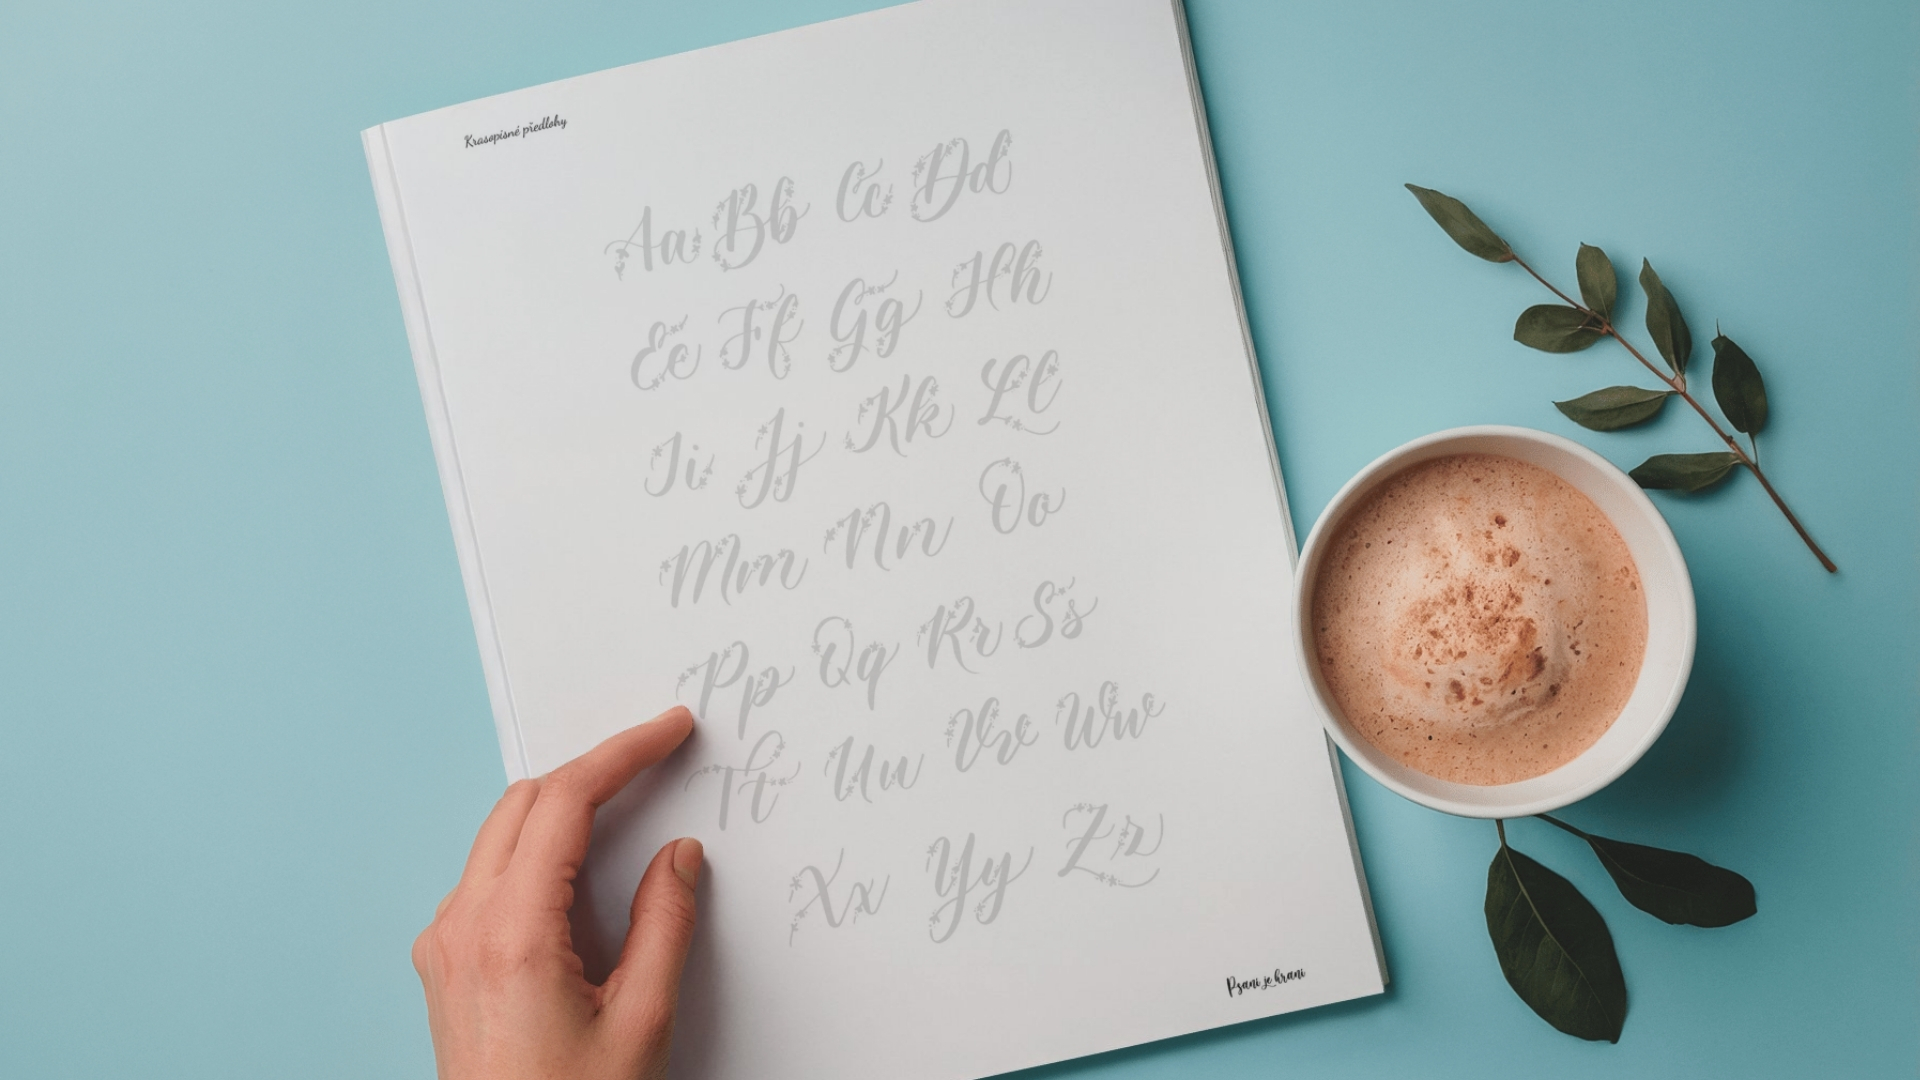 Krasopisné předlohy
Aa Bb Cc Dd
Ee Ff Gg Hh
Ii Jj Kk Ll
Mm Nn Oo
Pp Qq Rr Ss
Tt Uu Vv Ww
Xx Yy Zz
Psaní je hraní